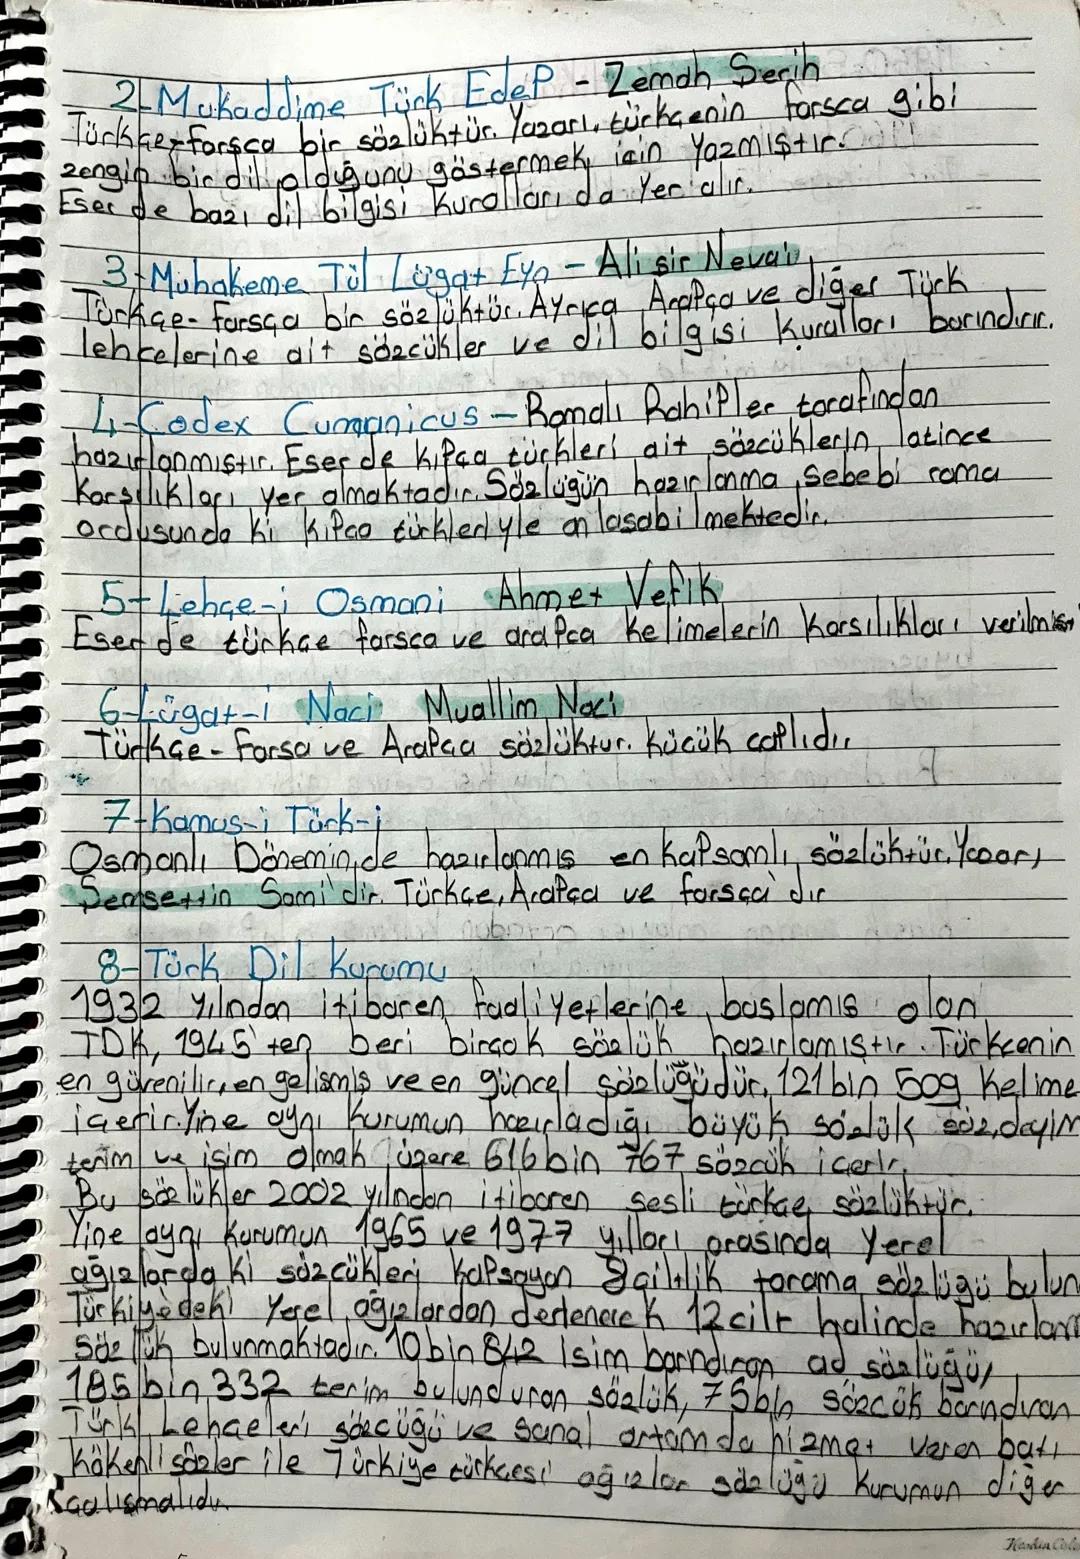 2-Mukaddime Türk Edep - Zemah Serih
Türkçe-farsça bir sözlüktür. Yazarı, türkçenin farsca gibi
zengin bir dil olduğunu göstermek için yazmıştır.
Eser de bazı dil bilgisi kuralları da yer alır.
3-Muhakeme Tül Lügat Eyn - Ali şir Nevai
Türkçe-farsça bir sözlüktür. Ayrıca Arapça ve diğer Türk
lehçelerine ait sözcükler ve dil bilgisi kuralları barındırır.
4-Codex Cumanicus - Romalı Rahipler tarafından
hazırlanmıştır. Eser de kıpça türkleri ait sözcüklerin latince
Karşılıkları yer almaktadır. Sözlüğün hazırlanma sebebi roma
ordusunda ki kıpca türkleriyle anlasabilmektedir.
5-Lehçe-i Osmani Ahmet Vefik
Eser de türkçe farsca ve arapca kelimelerin karsılıkları verilmist
6-Lügat-i Naci Muallim Naci
Türkçe-Farsa ve Arapça sözlüktur. Kücük caplıdır
7-Kamus-i Türk-i
Osmanlı Döneminde hazırlanmıs en kapsamlı sözlüktür. Yazarı
Semsettin Sami'dir. Türkçe, Arapça ve farsça'dır
8-Türk Dil Kurumu
1932 yılndan itibaren faaliyetlerine baslamıs olan
TDK, 1945'ten beri birçok sözlük hazırlamıştır. Türkcenin
en güvenilir, en gelismis ve en güncel sözlüğüdür. 121 bin 509 Kelime
içerir. Yine aynı kurumun hazırladığı büyük sözlük söz, deyim
terim ve isim olmak üzere 616 bin 767 sözcük icerir.
Bu sözlükler 2002 yılından itibaren sesli türkçe sözlüktür.
Yine aynı kurumun 1965 ve 1977 yılları arasında yerel
ağızlarda ki sözcükleri kapsayan 8 ciltlik tarama sözlüğü bulun
Türkiyedeki yerel ağızlardan derlenerek 12 cilt halinde hazırlan
Sözlük bulunmaktadır. 10 bin 842 isim barındıran ad sözlüğü,
185 bin 332 terim bulunduran sözlük, 75 bin sözcük barındıran
Türk Lehçeleri sözcüğü ve sanal ortamda hizmet veren batı
kökenli sözler ile Türkiye türkcesi ağızlar sözlüğü kurumun diğer
calısmalıdır